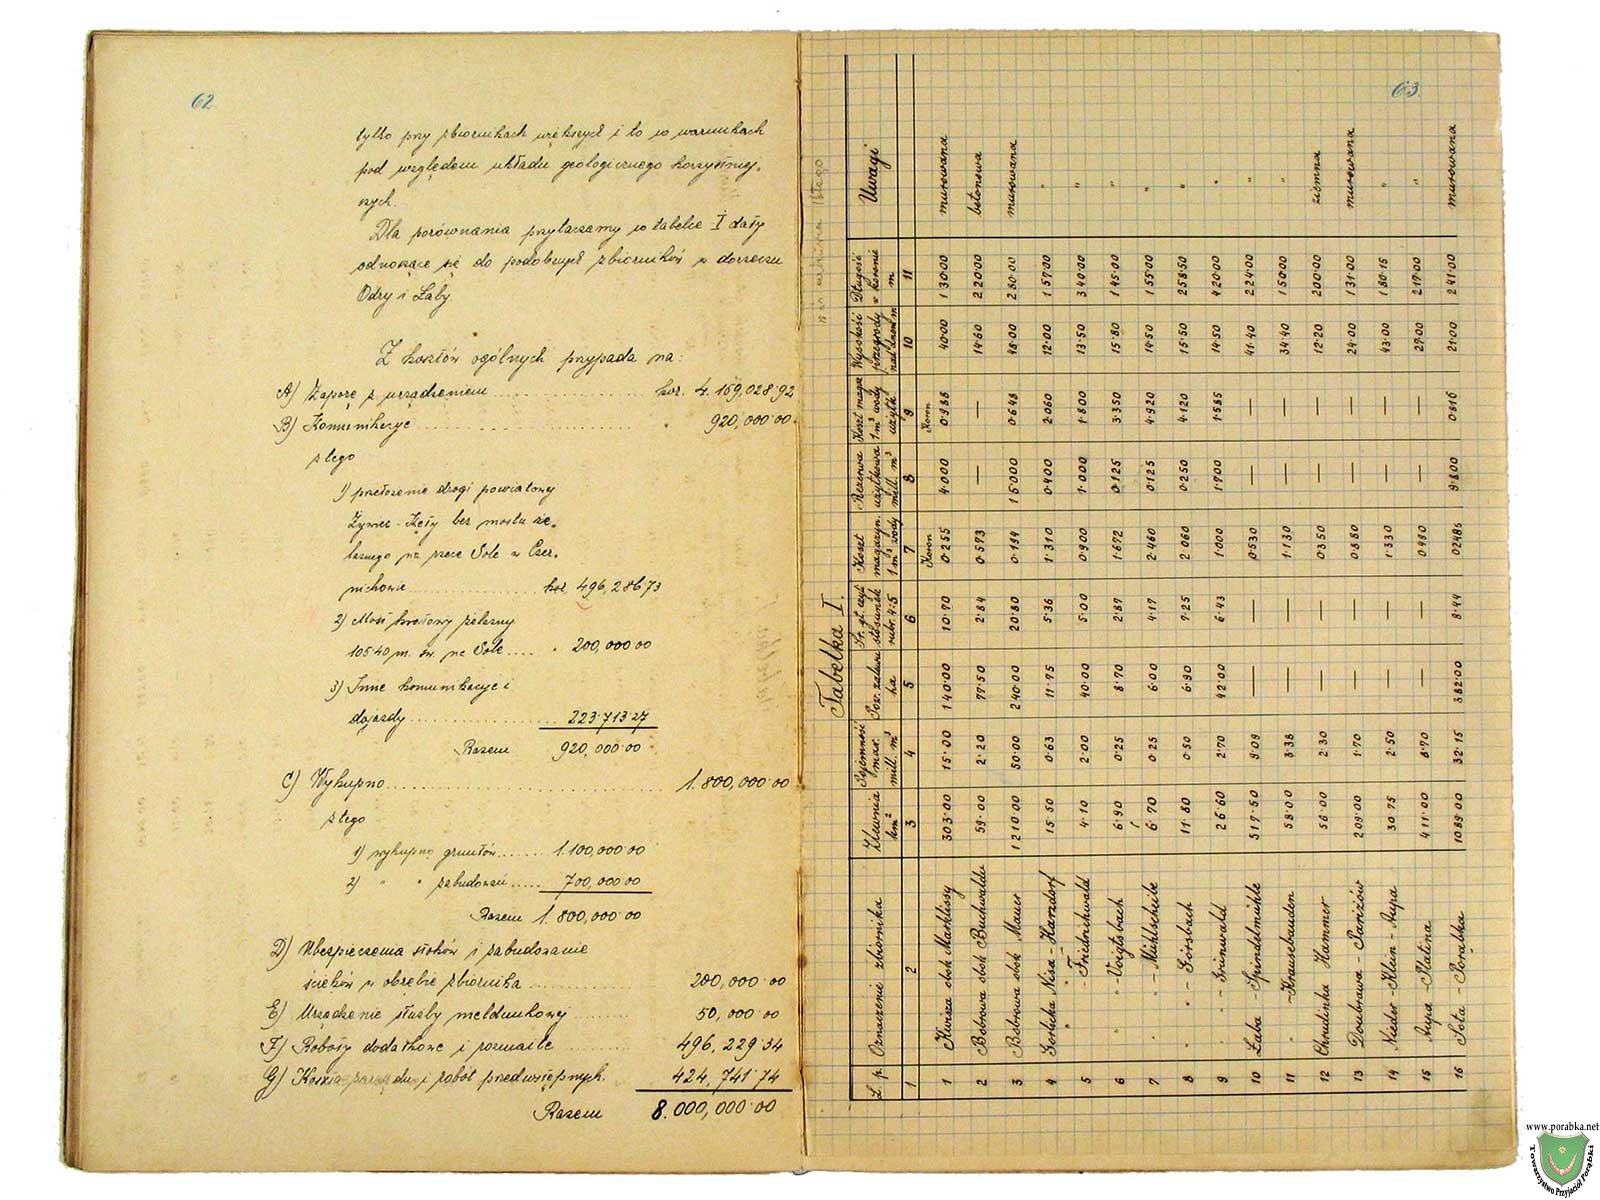 62
tylko przy zbiornikach większych i to w warunkach
pod względem układu geologicznego korzystniej-
szych.
Dla porównania przyłaczamy w tabelce I daty
odnoszące się do podobnych zbiorników w dorzeczu
Odry i Łaby.
Z kosztów ogólnych przypada na:
A) Zaporę z urządzeniem .......... kor. 4.159,028.92
B) Komunikacyę .......... " 920,000.00
z tego
1) przełożenie drogi powiatowej
Żywiec - Kęty bez mostu że-
laznego na rzece Sole w Czer-
nichowie kor 496,286.73
2) Most kratowy żelazny
105.40 m. św. na Sole .... " 200,000.00
3) Inne komunikacye i
dojazdy .......... 223.713.27
Razem 920,000.00
C) Wykupno .......... 1.800,000.00
z tego
1) wykupno gruntów ...... 1.100,000.00
2) " " zabudowań ..... 700,000.00
Razem 1.800,000.00
D) Ubezpieczenia stoków i zabudowanie
ścieków w obrębie zbiornika .......... 200,000.00
E) Urządzenie służby meldunkowej .......... 50,000.00
F) Roboty dodatkowe i rozmaite .......... 496,229.34
G) Koszta zarządu i robót przedwstępnych. 424,741.74
Razem 8.000,000.00
63.
Tabelka I.
L. p. Oznaczenie zbiornika Zlewnia km² Pojemność max. mill. m³ Pow. zalewu ha Śr. gł. czyli stosunek rubr. 4:5 Koszt magazyn. 1 m³ wody Rezerwa użytkowa mill. m³ Koszt magaz. 1 m³ wody użytk. Wysokość przegrody nad dnem m Długość w koronie m Uwagi
1 2 3 4 5 6 7 8 9 10 11
Koron Koron
1 Kwisa obok Marklissy 303.00 15.00 140.00 10.70 0.255 4.000 0.986 40.00 130.00 murowana
2 Bobrowa obok Buchwaldu 59.00 2.20 77.50 2.84 0.573 — — 14.60 220.00 betonowa
3 Bobrowa obok Mauer 1210.00 50.00 240.00 20.80 0.194 15.000 0.648 48.00 280.00 murowana
4 Gorlicka Nisa - Harzdorf 15.50 0.63 11.75 5.36 1.310 0.400 2.060 12.00 157.00 "
5 " - Friedrichwald 4.10 2.00 40.00 5.00 0.900 1.000 1.800 13.50 340.00 "
6 " " - Voigtsbach 6.90 0.25 8.70 2.87 1.672 0.125 3.350 15.80 145.00 "
7 " " - Mühlscheibe 6.70 0.25 6.00 4.17 2.460 0.125 4.920 14.50 155.00 "
8 " " - Görsbach 11.80 0.50 6.90 7.25 2.060 0.250 4.120 15.50 258.50 "
9 " " - Grünwald 26.60 2.70 42.00 6.43 1.000 1.700 1.585 14.50 420.00 "
10 Łaba - Spindelmühle 517.50 9.09 — — 0.530 — — 41.40 224.00 "
11 " - Krausebauden 58.00 3.38 — — 1.130 — — 34.40 150.00 "
12 Chrudinka Hammer 56.00 2.30 — — 0.350 — — 12.20 200.00 ziemna
13 Doubrawa - Pariżów 209.00 1.70 — — 0.580 — — 24.00 131.00 murowana
14 Kleine - Aupa 30.75 2.50 — — 1.330 — — 43.00 180.15 "
15 Aupa - Slatina 411.00 8.70 — — 0.430 — — 29.00 217.00 "
16 Soła - Porąbka 1089.00 32.15 382.00 8.44 0.2486 9.800 0.816 21.00 241.00 murowana
www.porabka.net
Towarzystwo Przyjaciół Porąbki